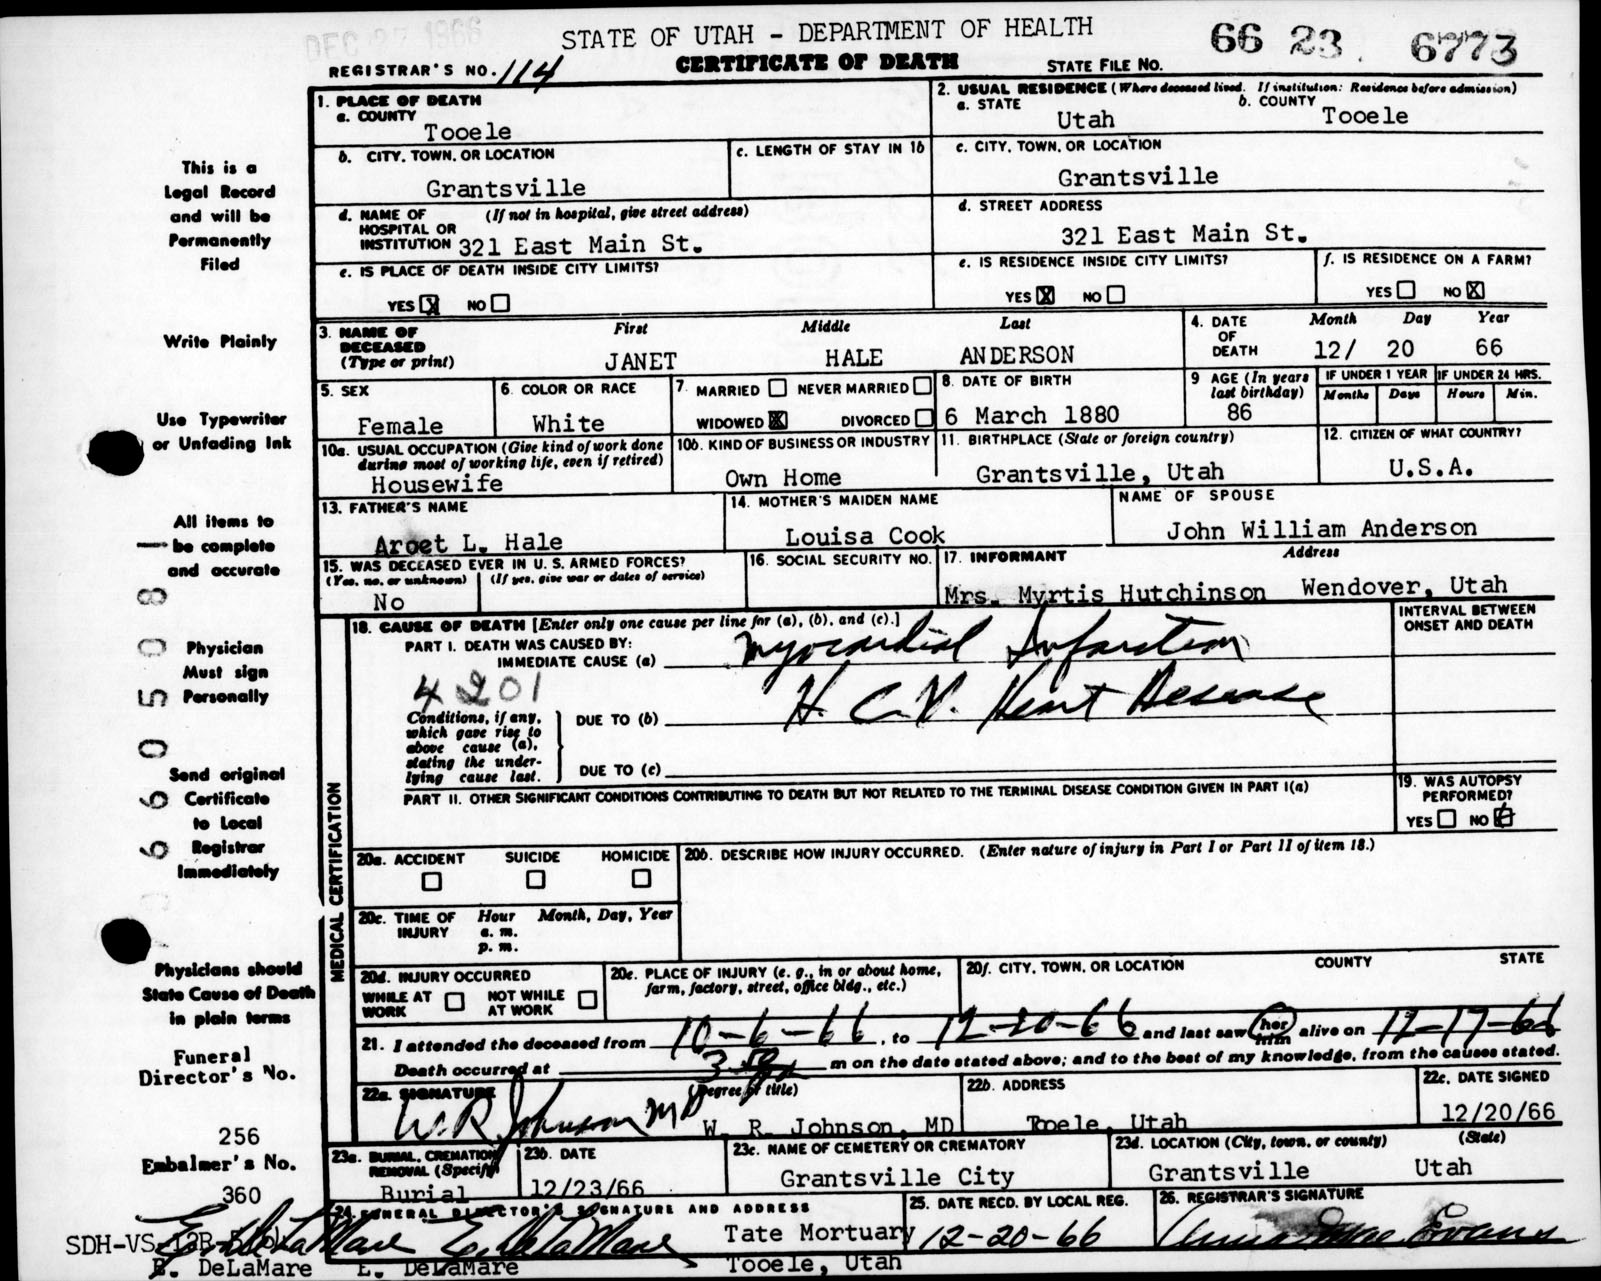 DEC 27 1966
STATE OF UTAH - DEPARTMENT OF HEALTH
66 23 6773
REGISTRAR'S NO. 114
CERTIFICATE OF DEATH
STATE FILE NO.
This is a
Legal Record
and will be
Permanently
Filed
Write Plainly
Use Typewriter
or Unfading Ink
All items to
be complete
and accurate
Physician
Must sign
Personally
Send original
Certificate
to Local
Registrar
Immediately
Physicians should
State Cause of Death
in plain terms
Funeral
Director's No.
256
Embalmer's No.
360
660508
1. PLACE OF DEATH
a. COUNTY
Tooele
2. USUAL RESIDENCE (Where deceased lived. If institution: Residence before admission)
a. STATE
Utah
b. COUNTY
Tooele
b. CITY, TOWN, OR LOCATION
Grantsville
c. LENGTH OF STAY IN 1b
c. CITY, TOWN, OR LOCATION
Grantsville
d. NAME OF (If not in hospital, give street address)
HOSPITAL OR
INSTITUTION 321 East Main St.
d. STREET ADDRESS
321 East Main St.
e. IS PLACE OF DEATH INSIDE CITY LIMITS?
YES X NO
e. IS RESIDENCE INSIDE CITY LIMITS?
YES X NO
f. IS RESIDENCE ON A FARM?
YES NO X
3. NAME OF
DECEASED
(Type or print)
First Middle Last
JANET HALE ANDERSON
4. DATE
OF
DEATH
Month Day Year
12/ 20 66
5. SEX
Female
6. COLOR OR RACE
White
7. MARRIED NEVER MARRIED
WIDOWED X DIVORCED
8. DATE OF BIRTH
6 March 1880
9 AGE (In years
last birthday)
86
IF UNDER 1 YEAR
Months Days
IF UNDER 24 HRS.
Hours Min.
10a. USUAL OCCUPATION (Give kind of work done
during most of working life, even if retired)
Housewife
10b. KIND OF BUSINESS OR INDUSTRY
Own Home
11. BIRTHPLACE (State or foreign country)
Grantsville, Utah
12. CITIZEN OF WHAT COUNTRY?
U.S.A.
13. FATHER'S NAME
Aroet L. Hale
14. MOTHER'S MAIDEN NAME
Louisa Cook
NAME OF SPOUSE
John William Anderson
15. WAS DECEASED EVER IN U. S. ARMED FORCES?
(Yes, no, or unknown) (If yes, give war or dates of service)
No
16. SOCIAL SECURITY NO.
17. INFORMANT Address
Mrs. Myrtis Hutchinson Wendover, Utah
MEDICAL CERTIFICATION
18. CAUSE OF DEATH [Enter only one cause per line for (a), (b), and (c).]
PART I. DEATH WAS CAUSED BY:
IMMEDIATE CAUSE (a) Myocardial Infarction
4201
Conditions, if any,
which gave rise to
above cause (a),
stating the under-
lying cause last.
DUE TO (b) H. C.V. Heart Disease
DUE TO (c)
INTERVAL BETWEEN
ONSET AND DEATH
PART II. OTHER SIGNIFICANT CONDITIONS CONTRIBUTING TO DEATH BUT NOT RELATED TO THE TERMINAL DISEASE CONDITION GIVEN IN PART I(a)
19. WAS AUTOPSY
PERFORMED?
YES NO
20a. ACCIDENT SUICIDE HOMICIDE
20b. DESCRIBE HOW INJURY OCCURRED. (Enter nature of injury in Part I or Part II of item 18.)
20c. TIME OF Hour Month, Day, Year
INJURY a. m.
p. m.
20d. INJURY OCCURRED
WHILE AT NOT WHILE
WORK AT WORK
20e. PLACE OF INJURY (e. g., in or about home,
farm, factory, street, office bldg., etc.)
20f. CITY, TOWN, OR LOCATION COUNTY STATE
21. I attended the deceased from 10-6-66, to 12-20-66 and last saw her him alive on 12-17-66
Death occurred at 3 50 m on the date stated above; and to the best of my knowledge, from the causes stated.
22a. SIGNATURE (Degree or title)
W.R Johnson MD W. R. Johnson, MD
22b. ADDRESS
Tooele, Utah
22c. DATE SIGNED
12/20/66
23a. BURIAL, CREMATION
REMOVAL (Specify)
Burial
23b. DATE
12/23/66
23c. NAME OF CEMETERY OR CREMATORY
Grantsville City
23d. LOCATION (City, town, or county) (State)
Grantsville Utah
24. FUNERAL DIRECTOR'S SIGNATURE AND ADDRESS
Tate Mortuary
E. DeLaMare E. DeLaMare Tooele, Utah
25. DATE RECD. BY LOCAL REG.
12-20-66
26. REGISTRAR'S SIGNATURE
Evans
SDH-VS